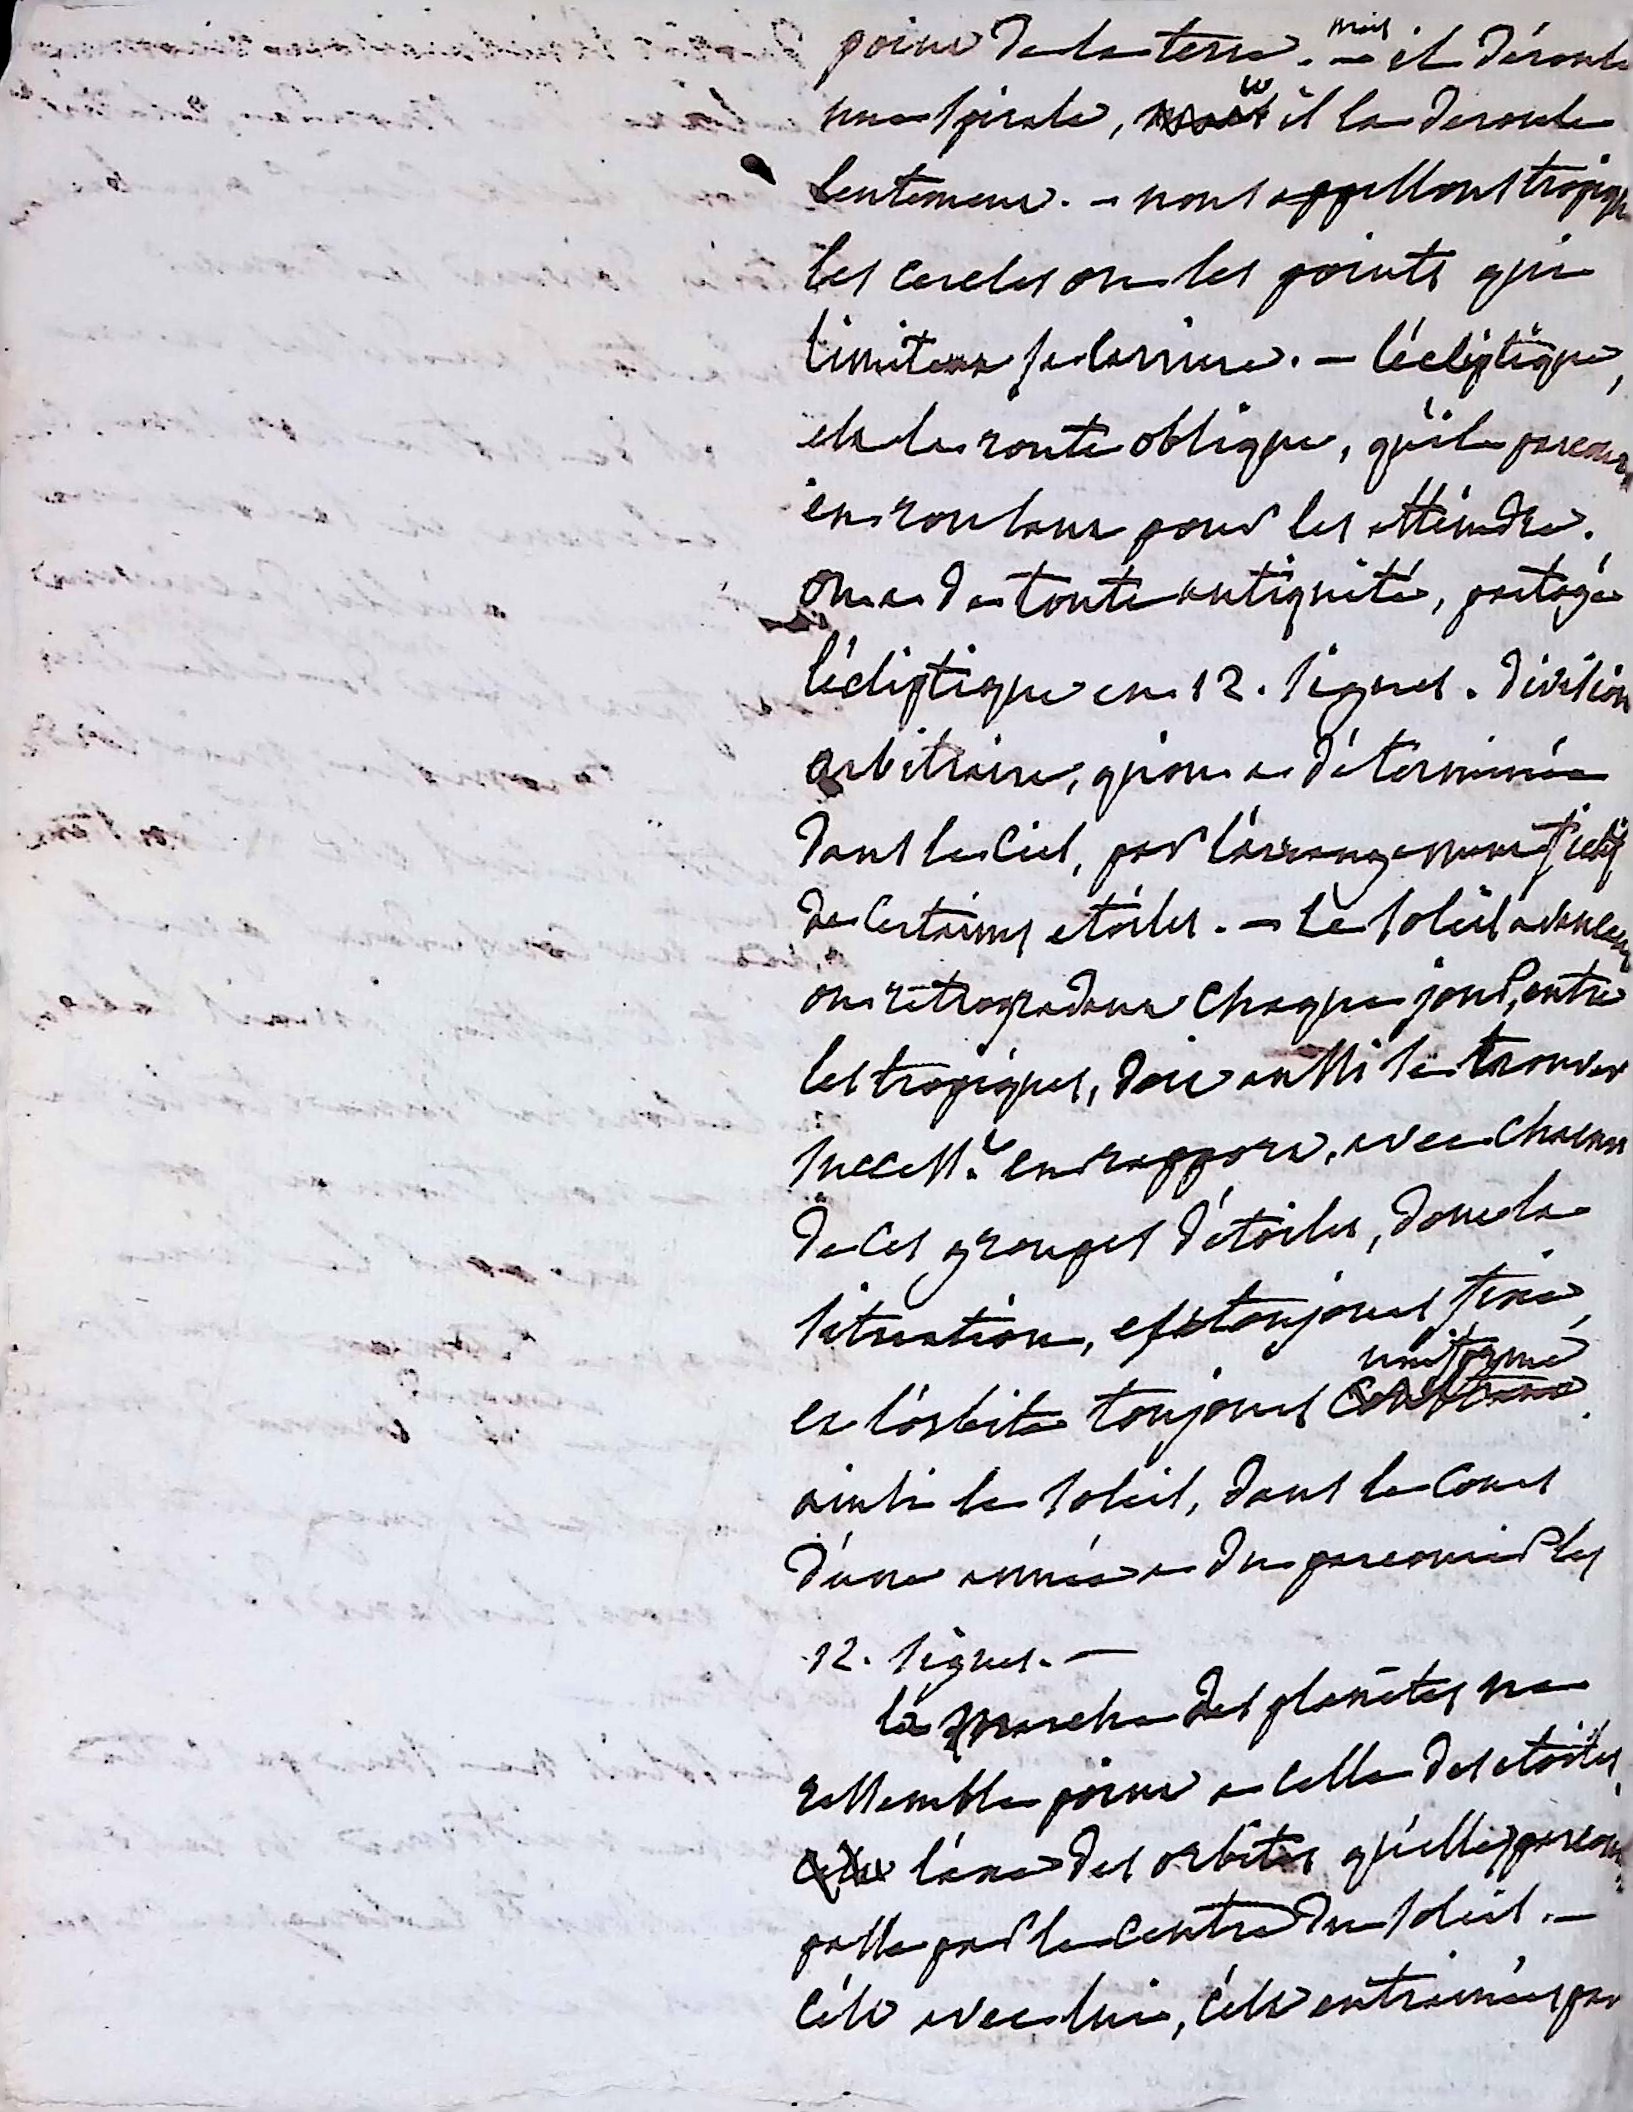 point de la terre. — mais il déroule
une spirale, et il la deroule
lentement. — nous appellons tropiques
les cercles ou les points qui
limitent sa carriere. — l'écliptique,
est la route oblique, qu'il parcourt
en roulant pour les atteindre.
on a de toute antiquité, partagé
l'écliptique en 12. signes. division
arbitraire, qu'on a déterminée
dans le ciel, par l'arrangement
de certaines etoiles. — Le soleil avançant
ou retrogradant chaque jour, entre
les tropiques, doit aussi se trouver
success.t en rapport, avec chacun
de ces groupes d'étoiles, dont la
situation, est toujours fixe,
et l'orbite toujours uniforme.
ainsi le soleil, dans le cours
d'une année a du parcourir les
12. signes. —
la marche des planètes ne
ressemble point a celle des etoiles,
l'axe des orbites qu'elles parcourent
passe par le centre du soleil. —
c'est avec lui, c'est entrainées par